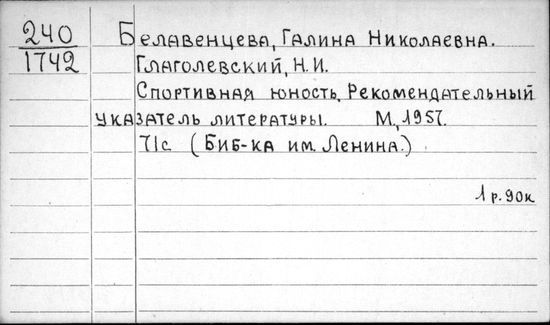 240
1742
Белавенцева, Галина Николаевна.
Глаголевский, Н.И.
Спортивная юность. Рекомендательный
указатель литературы. М., 1957.
71с (Биб-ка им. Ленина.)
1 р. 90к